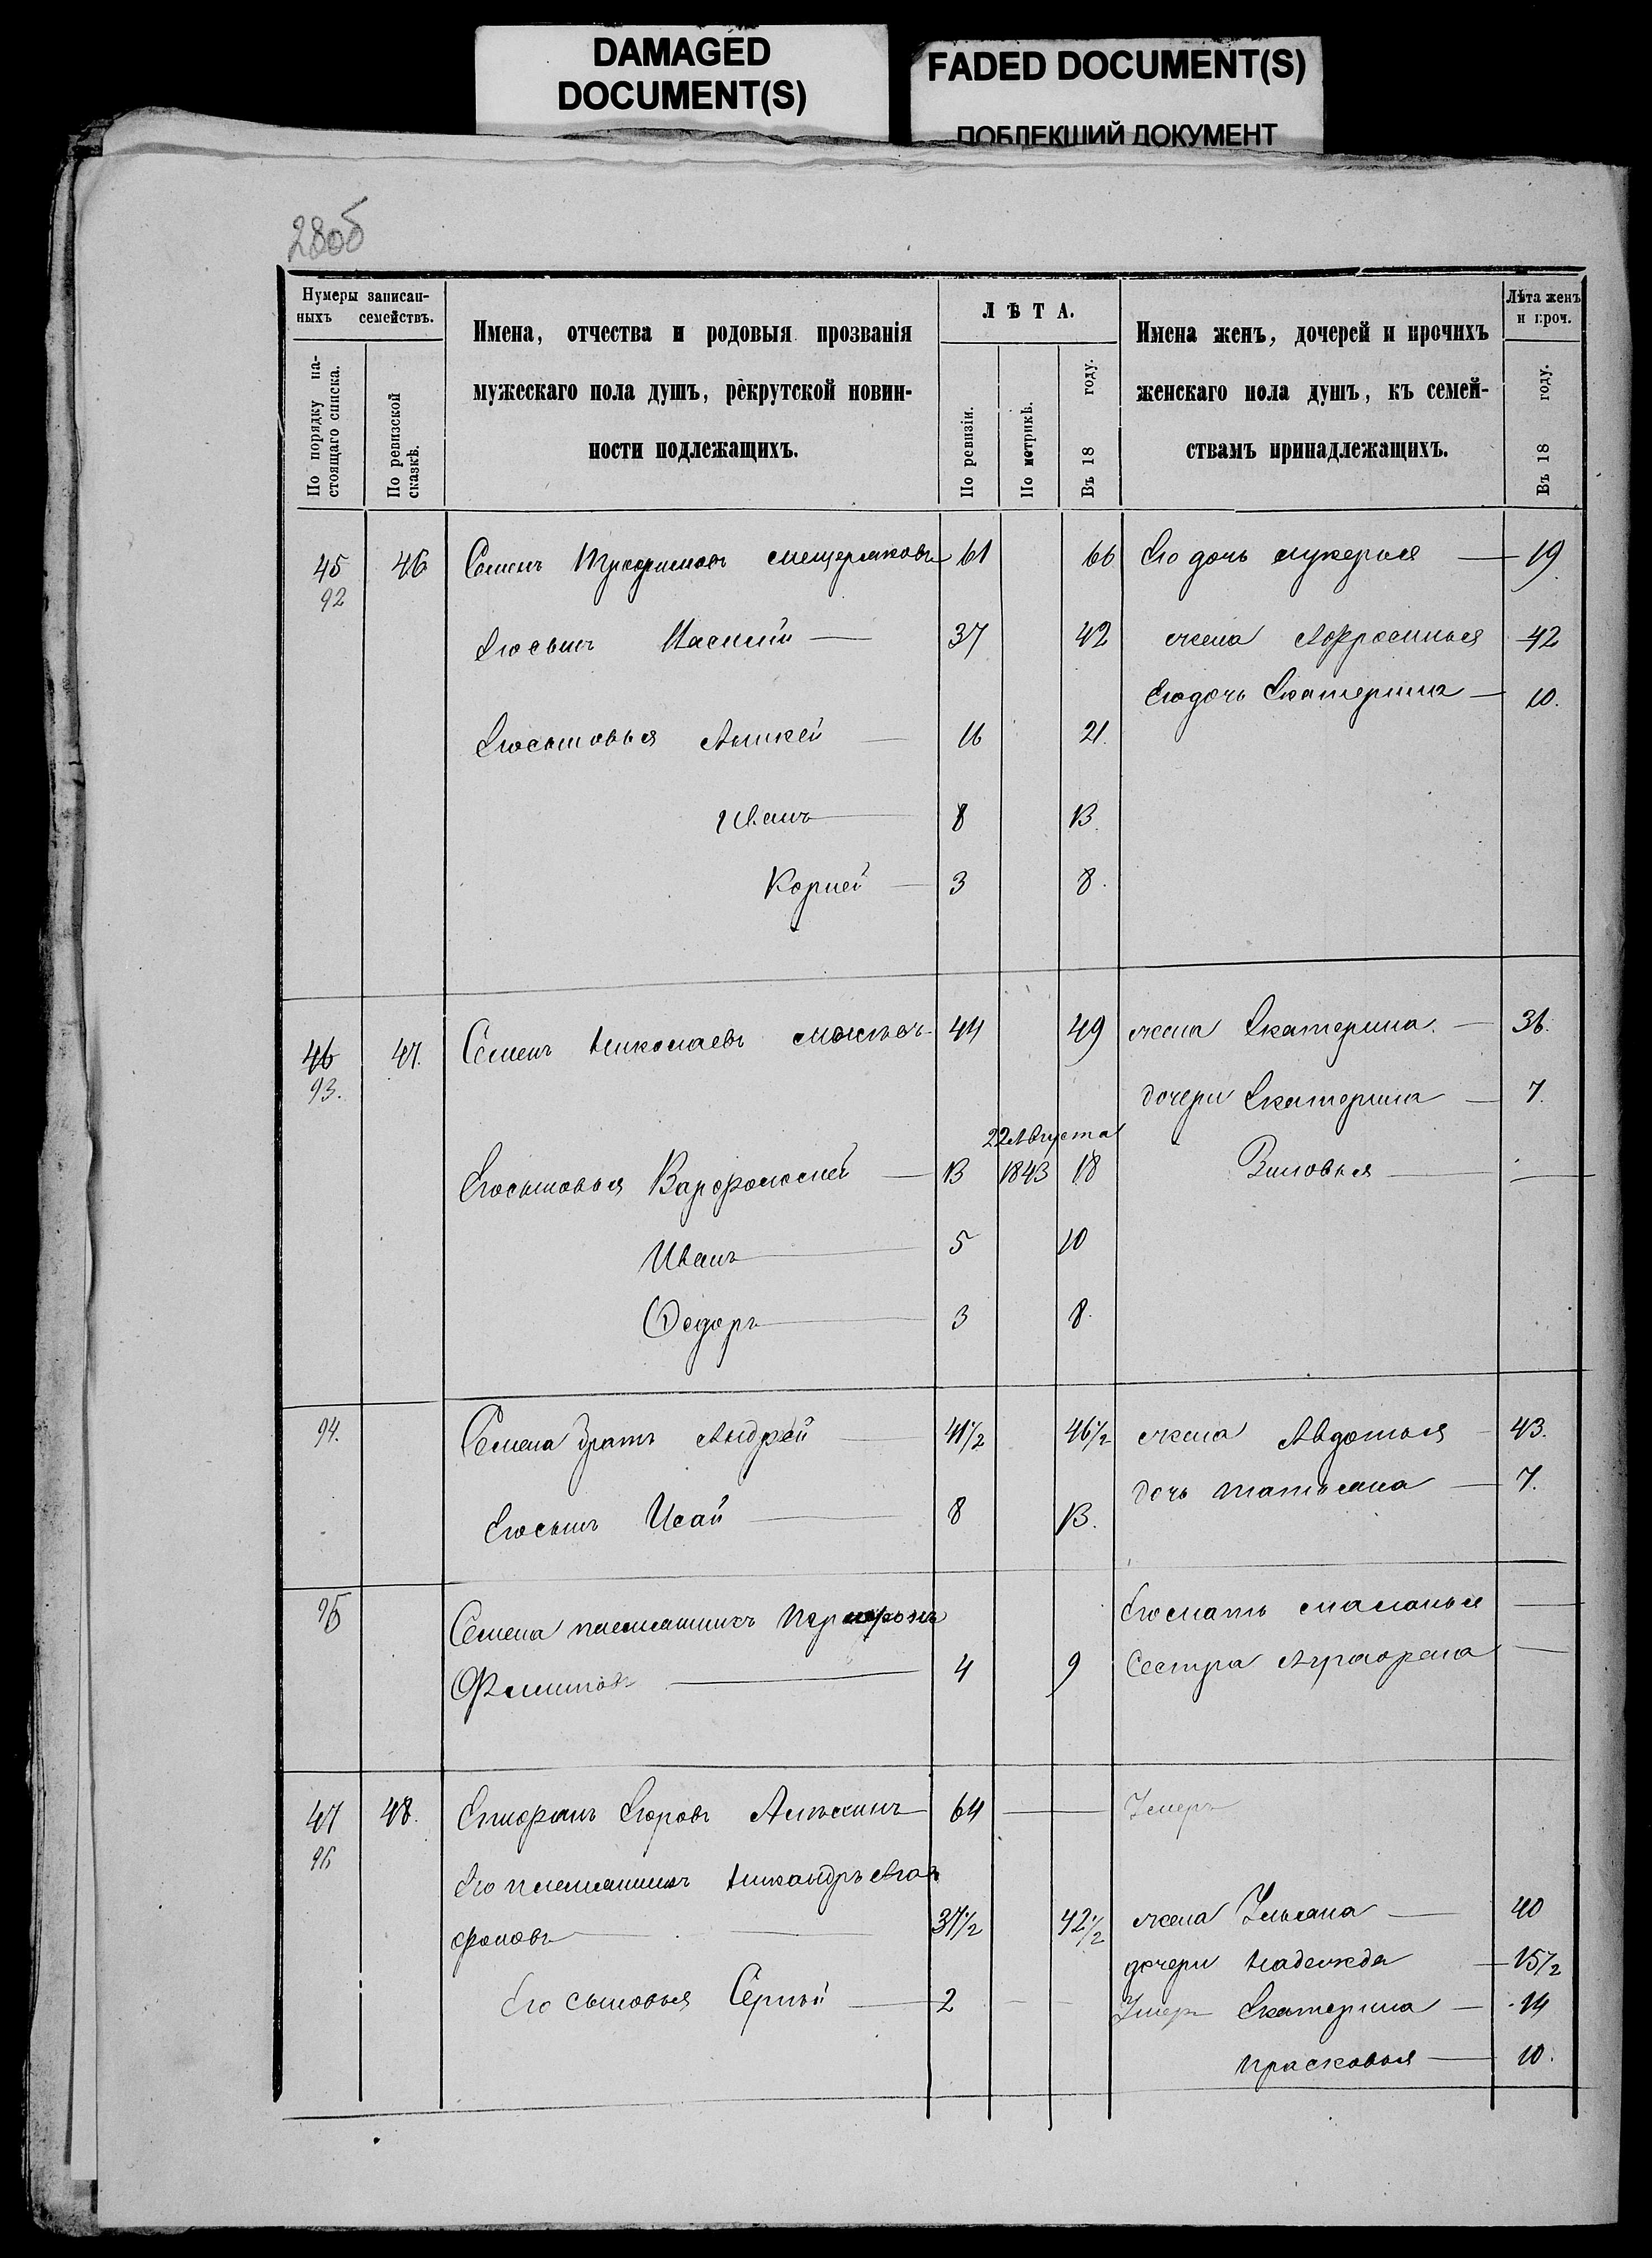 DAMAGED
DOCUMENT(S)
FADED DOCUMENT(S)
ПОБЛЕКШИЙ ДОКУМЕНТ
280б
Нумеры записан-
ныхъ семействъ.
По порядку на-
стоящаго списка.
По ревизской
сказкѣ.
Имена, отчества и родовыя прозванія
мужескаго пола душъ, рекрутской повин-
ности подлежащихъ.
ЛѢТА.
По ревизіи.
По метрикѣ.
Въ 18 году.
Имена женъ, дочерей и прочихъ
женскаго пола душъ, къ семей-
ствамъ принадлежащихъ.
Лѣта женъ
и проч.
Въ 18 году.
45 46 Семенъ Трофимовъ Мещеряковъ 61 66 Его дочь Лукерья 19
92
Его сынъ Василій 37 42 жена Афросинья 42
Его дочь Екатерина 10.
Его сыновья Аникей 16 21.
Иванъ 8 13.
Корней 3 8.
46 47. Семенъ Николаевъ 44 49 жена Екатерина 36.
93.
дочери Екатерина 7.
22 Августа
Его сыновья Варфоломей 13 1843 18 Зиновья
Иванъ 5 10
Федоръ 3 8.
94. Семена братъ Андрей 41½ 46½ жена Авдотья 43.
дочь Татьяна 7.
Его сынъ Исай 8 13.
95 Семена племянникъ Его мать Маланья
Филипов 4 9 Сестра
47 48. Епифанъ Егоровъ Алехинъ 64 Умеръ
96
Его племянникъ Никандръ Ага-
фоновъ 37½ 42½ жена Ульяна 40
дочери Надежда 15½
Его сыновья Сергѣй 2 Умер Екатерина 14
Прасковья 10.